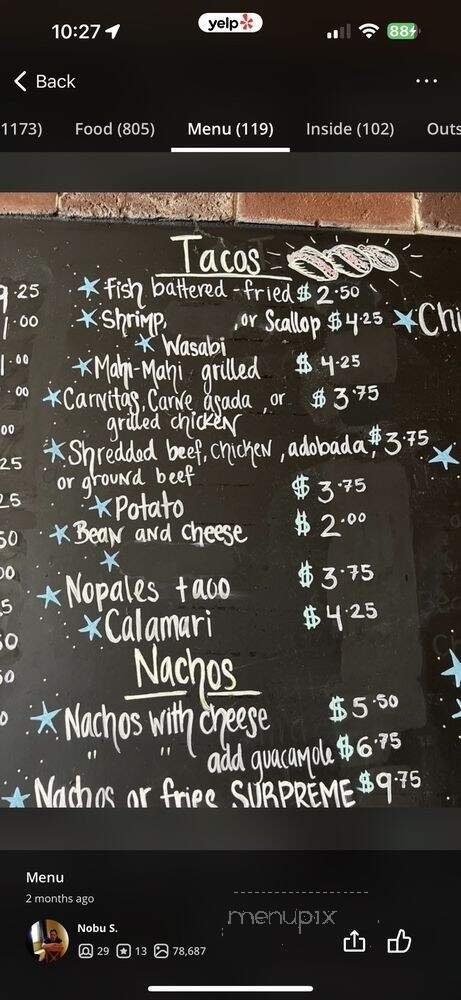 10:27
yelp
88
Back
1173)
Food (805)
Menu (119)
Inside (102)
Outs
Tacos
9.25
Fish battered-fried $2.50
1.00
Shrimp, ,or Scallop $4.25
Chi
Wasabi
1.00
Mahi-Mahi grilled $4.25
.00
Carnitas, Carne asada, or $3.75
grilled chicken
00
Shreddod beef, chicken, adobada, $3.75
25
or ground beef
$3.75
25
Potato
$2.00
50
Bean and cheese
00
$3.75
Nopales taco
5
$4.25
Calamari
50
Nachos
50
$5.50
Nachos with cheese
0
" " add guacamole $6.75
Nachos or fries SURPREME $9.75
Menu
2 months ago
menupix
Nobu S.
29 13 78,687